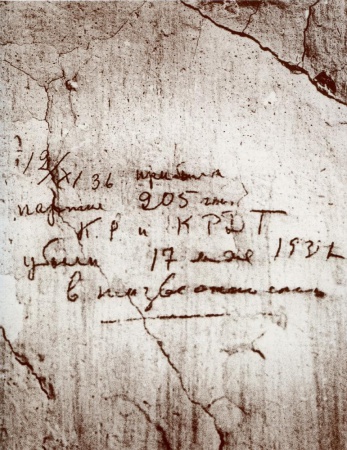 12/XI 36 прибыла
партия 205 чел.
КР и КРДТ
убыли 17 мая 1937
в неизвестность